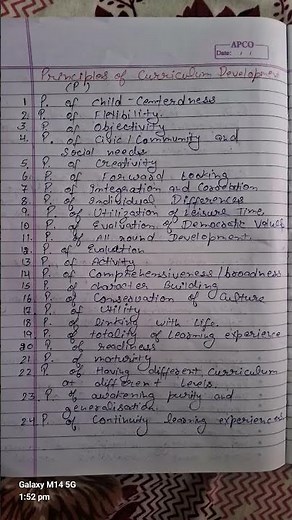 APCO
Date:
Principles of Curriculum Developmen
(P')
1 P. of child-Centerdness
2. P. of Flexibility.
3 P. of Objectivity
4. P. of Civic/Community and
Social needs.
5. P. of Creativity
6. P. of Forward Looking
7 P. of Integration and Correlation
8. P. of Individual Differences
9. P. of Utilization of Leisure Time.
10 P. of Evaluation of Democratic Values
11. P. of All round Development.
12 P. of Evalution
13 P. of Activity
14 P. of Comprehensiveness/broadness
15 P. of character Building
16 P. of Conservation of Culture
17 P. of Utility.
18 P. of linking with life.
19 P. of totality of Learning experience
20 P. of readiness
21 P. of maturity
22 P. of Having different Curriculum
at different levels.
23. P. of awakening purity and
generalisation.
24 P. of Continuity learning experiences
Galaxy M14 5G
1:52 pm